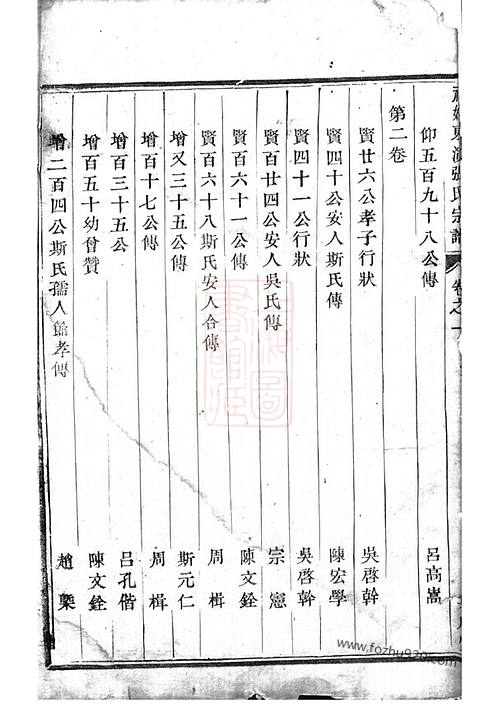 東演張氏宗譜 卷之一
仰五百九十八公傳 呂高嵩
第二卷
賢廿六公孝子行狀 吳啓幹
賢四十公安人斯氏傳 陳宏學
賢四十一公行狀 吳啓幹
賢百廿四公安人吳氏傳 宗憲
賢百六十一公傳 陳文銓
賢百六十八斯氏安人合傳 周楫
增又三十五公傳 斯元仁
增百十七公傳 周楫
增百三十五公 呂孔偕
增百五十幼曾贊 陳文銓
增二百四公斯氏孺人節孝傳 趙槩
www.fozhu920.com